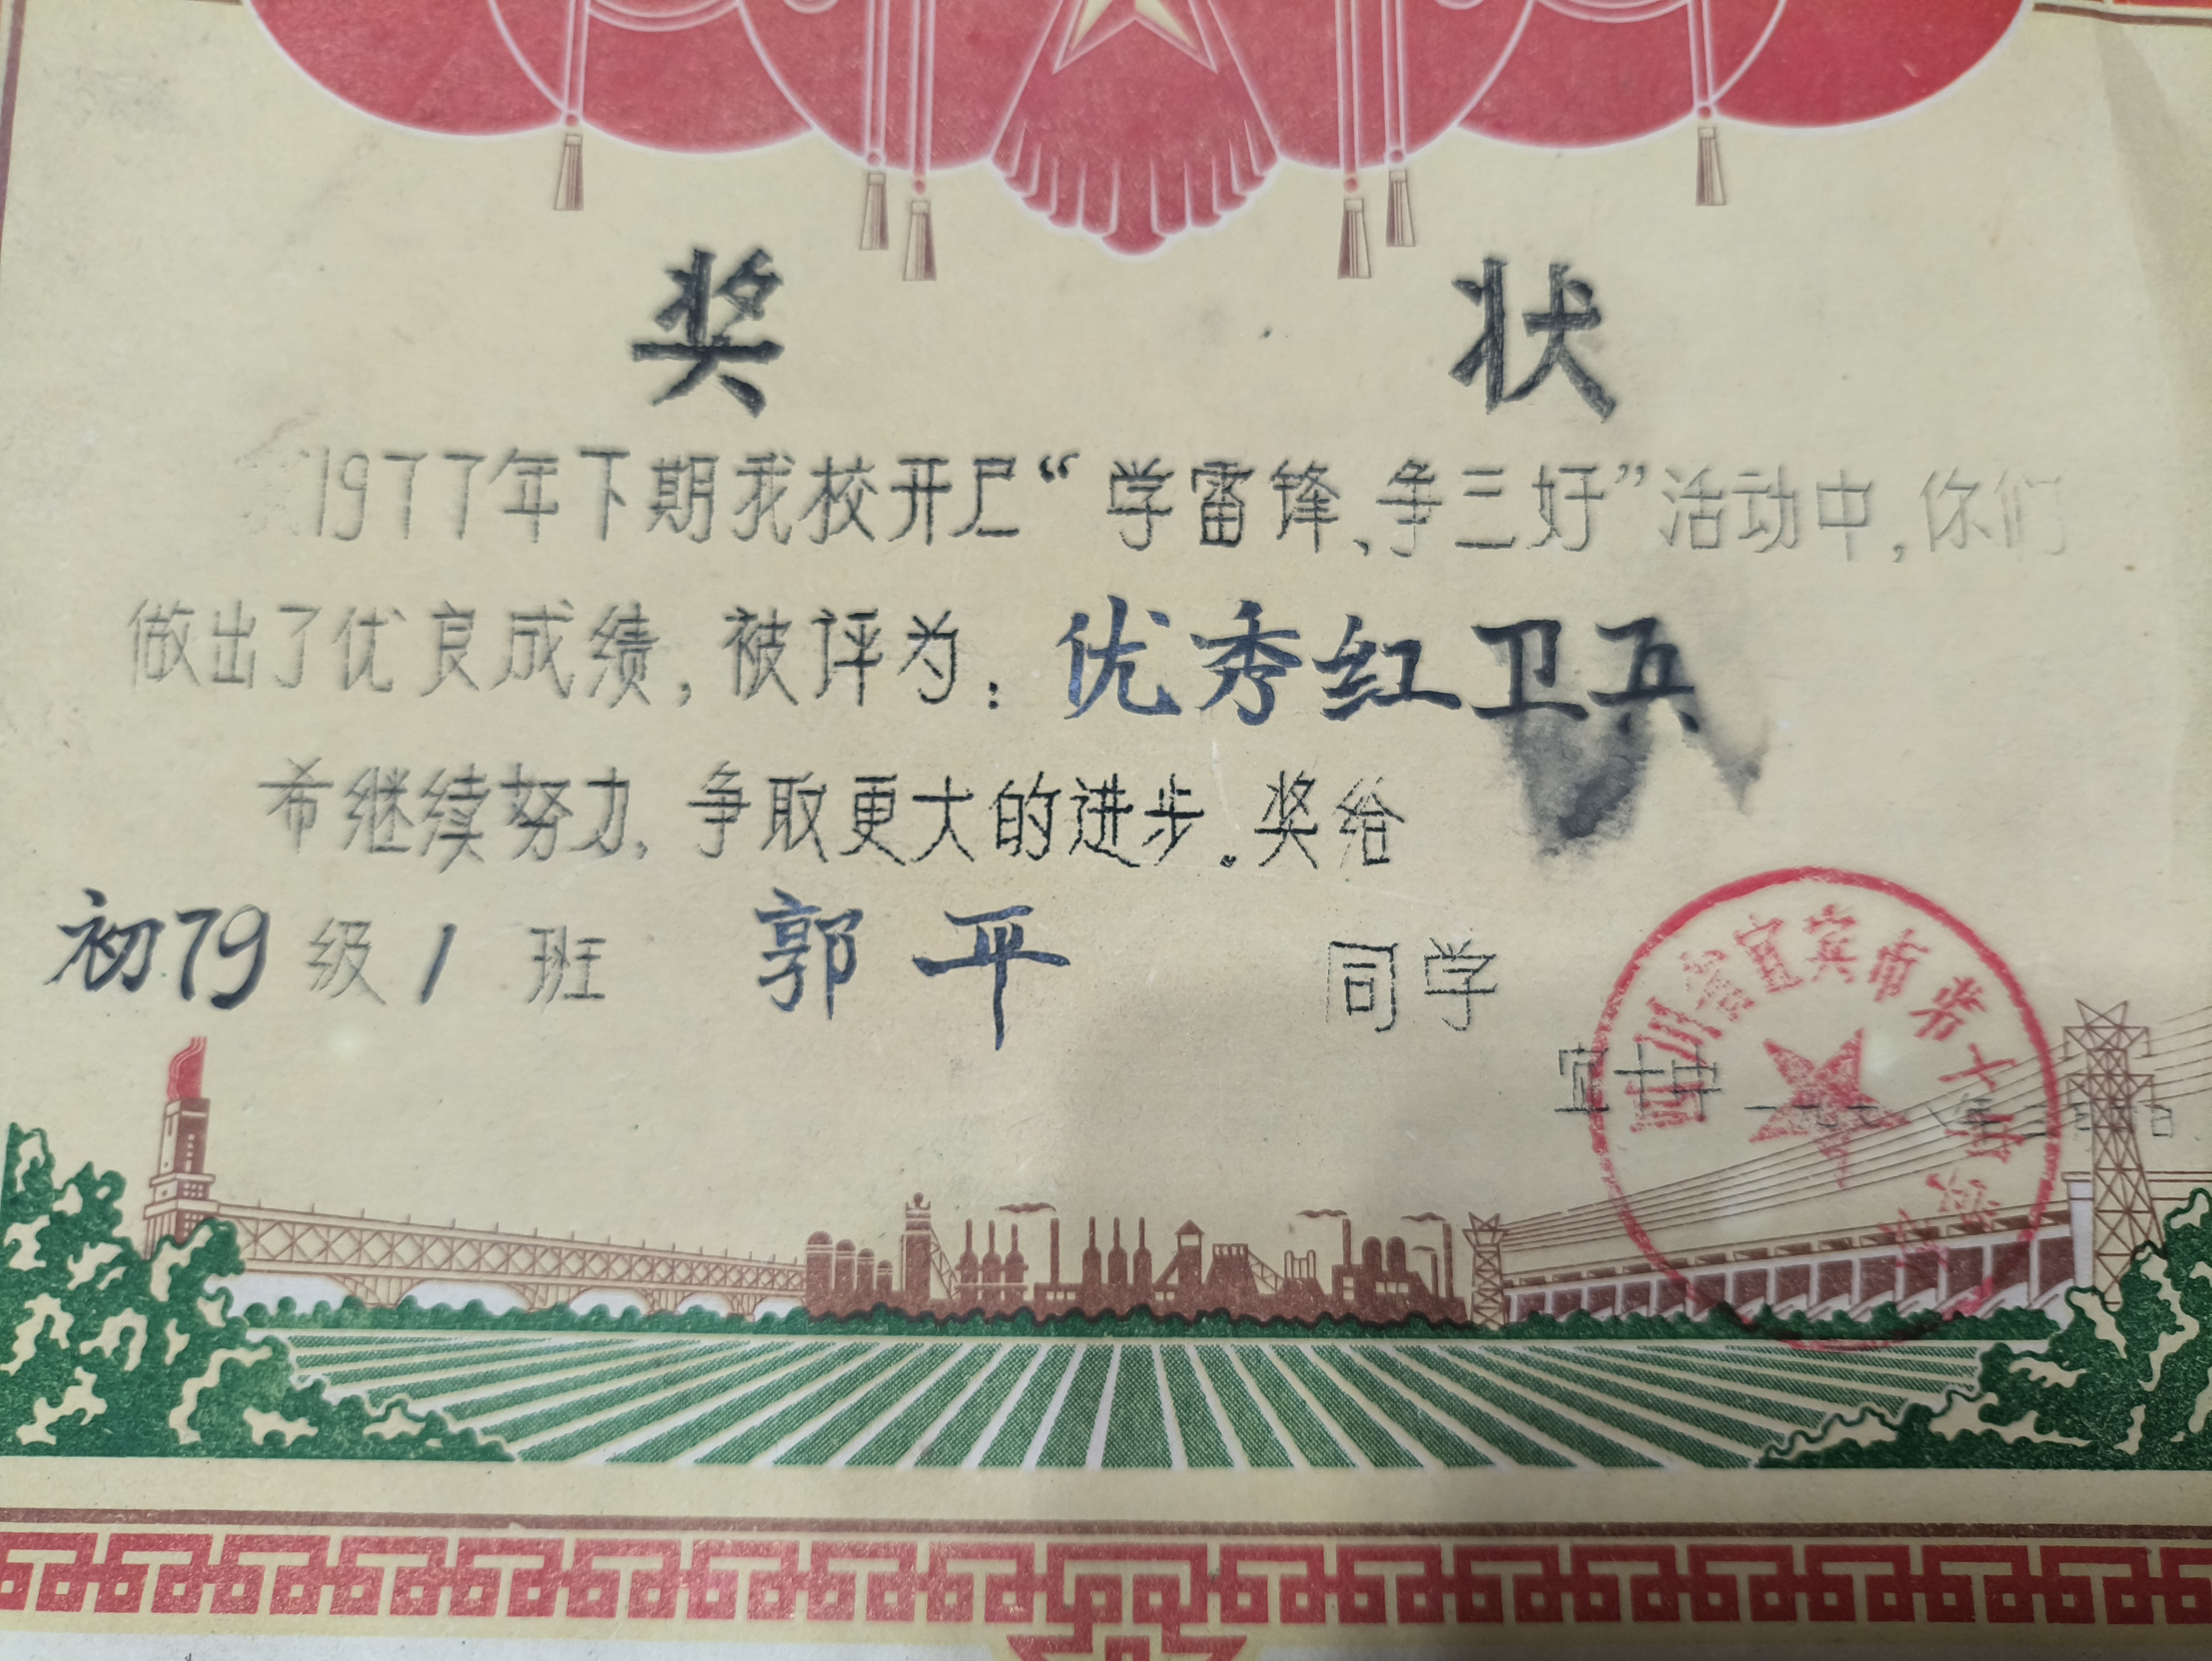 奖状
1977年下期我校开尸“学雷锋、争三好”活动中,你们
做出了优良成绩,被评为:优秀红卫兵
希继续努力,争取更大的进步。奖给
初79级1班 郭平 同学
宜十中
四川省宜宾市第十中学